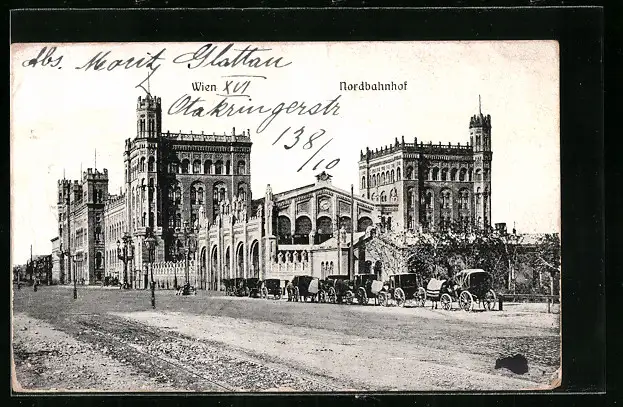 Abs. Moritz Glattau
Wien XVI Nordbahnhof
Otakringerstr
138/10